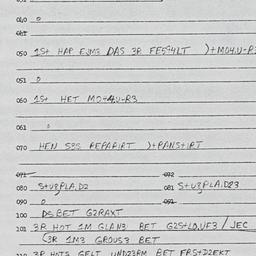 040 0
041
050 1St HAP EJM3 DAS 3R FE594LT )+MO4.U-R
051 0
060 1St HET MO+4.U-R3
061 0
070 HEN S3S REPARIRT )+PANStIRT
071 072
080 S+U3PLA.D2 081 S+U3PLA.D23
090 0 091
100 DS BET G2RAXT
101 3R HOT 1M GLAN3 BET G2S+LO.UF3 / JEC
(3R 1M3 GROUS3 BET
3R HOT3 GELT UND23RM BET FRS+D2EKT